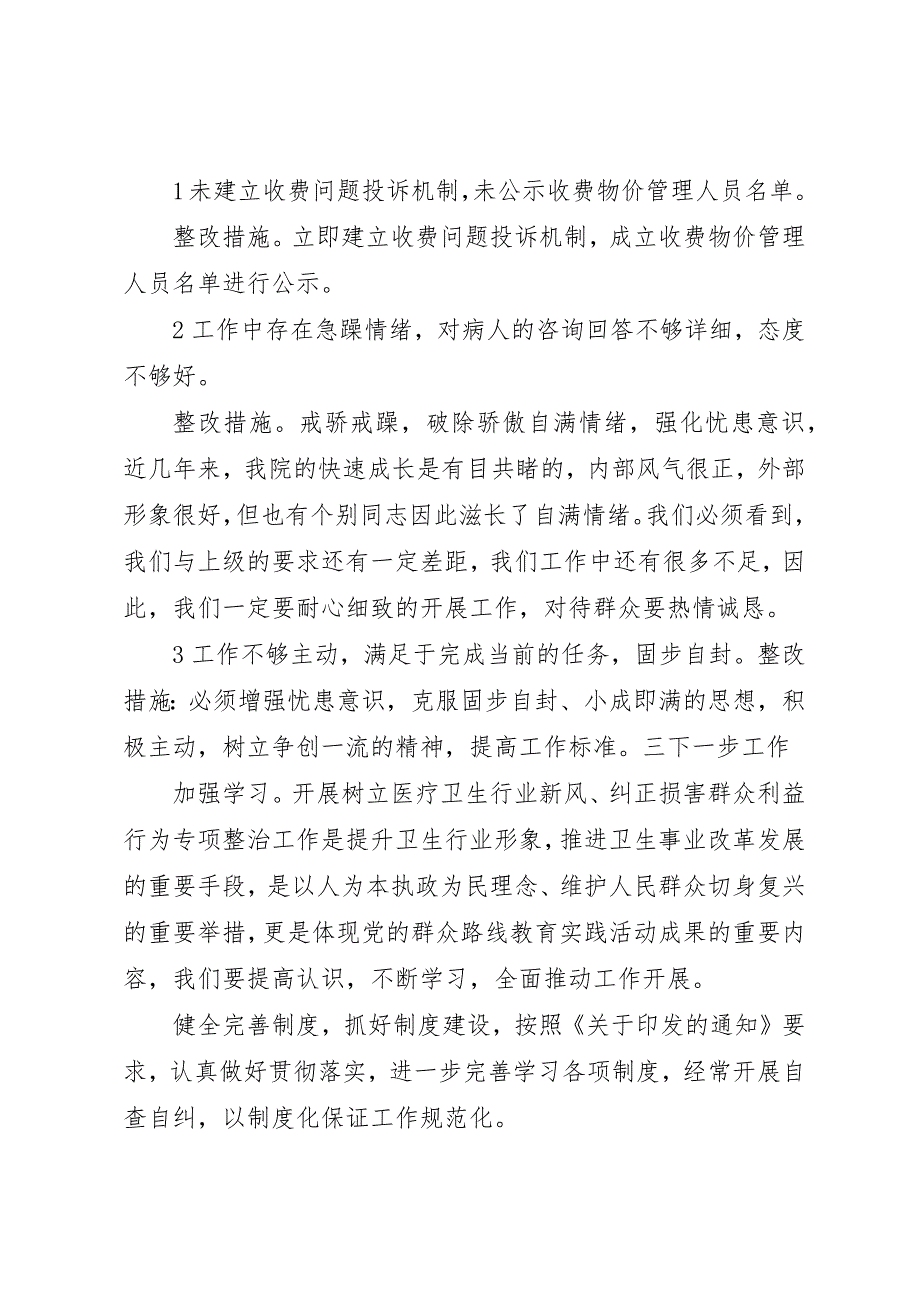 1未建立收费问题投诉机制，未公示收费物价管理人员名单。
整改措施。立即建立收费问题投诉机制，成立收费物价管理
人员名单进行公示。
2 工作中存在急躁情绪，对病人的咨询回答不够详细，态度
不够好。
整改措施。戒骄戒躁，破除骄傲自满情绪，强化忧患意识，
近几年来，我院的快速成长是有目共睹的，内部风气很正，外部
形象很好，但也有个别同志因此滋长了自满情绪。我们必须看到，
我们与上级的要求还有一定差距，我们工作中还有很多不足，因
此，我们一定要耐心细致的开展工作，对待群众要热情诚恳。
3 工作不够主动，满足于完成当前的任务，固步自封。整改
措施：必须增强忧患意识，克服固步自封、小成即满的思想，积
极主动，树立争创一流的精神，提高工作标准。三下一步工作
加强学习。开展树立医疗卫生行业新风、纠正损害群众利益
行为专项整治工作是提升卫生行业形象，推进卫生事业改革发展
的重要手段，是以人为本执政为民理念、维护人民群众切身复兴
的重要举措，更是体现党的群众路线教育实践活动成果的重要内
容，我们要提高认识，不断学习，全面推动工作开展。
健全完善制度，抓好制度建设，按照《关于印发的通知》要
求，认真做好贯彻落实，进一步完善学习各项制度，经常开展自
查自纠，以制度化保证工作规范化。